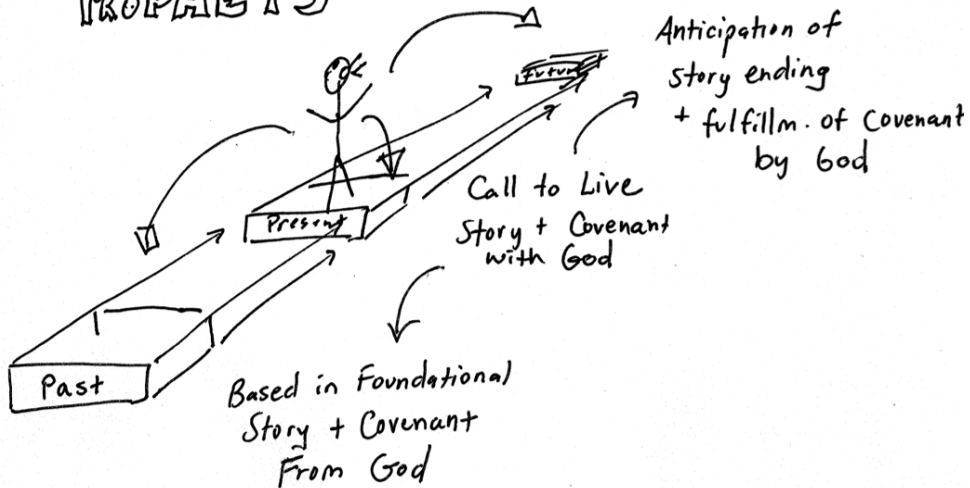 PROPHETS
Future
Anticipation of
story ending
+ fulfillm. of Covenant
by God
Call to Live
Story + Covenant
with God
Present
Past
Based in Foundational
Story + Covenant
From God